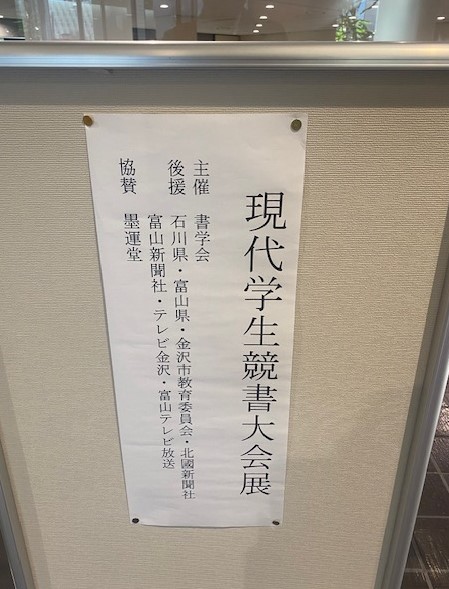 現代学生競書大会展
主催　書学会
後援　石川県・富山県・金沢市教育委員会・北國新聞社
富山新聞社・テレビ金沢・富山テレビ放送
協賛　墨運堂